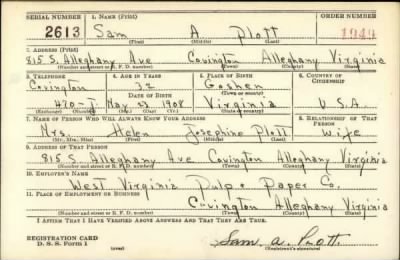 SERIAL NUMBER 1. NAME (Print) ORDER NUMBER
2613 Sam A Plott 1944
(First) (Middle) (Last)
2. ADDRESS (Print)
815 S. Alleghany Ave Covington Alleghany Virginia
(Number and street or R. F. D. number) (Town) (County) (State)
3. TELEPHONE 4. AGE IN YEARS 5. PLACE OF BIRTH 6. COUNTRY OF CITIZENSHIP
Covington 32 Goshen
DATE OF BIRTH (Town or county)
420-J May 23 1908 Virginia U.S.A.
(Exchange) (Number) (Mo.) (Day) (Yr.) (State or country)
7. NAME OF PERSON WHO WILL ALWAYS KNOW YOUR ADDRESS 8. RELATIONSHIP OF THAT PERSON
Mrs. Helen Josephine Plott Wife
(Mr., Mrs., Miss) (First) (Middle) (Last)
9. ADDRESS OF THAT PERSON
815 S. Alleghany Ave Covington Alleghany Virginia
(Number and street or R. F. D. number) (Town) (County) (State)
10. EMPLOYER'S NAME
West Virginia Pulp & Paper Co.
11. PLACE OF EMPLOYMENT OR BUSINESS
Covington Alleghany Virginia
(Number and street or R. F. D. number) (Town) (County) (State)
I AFFIRM THAT I HAVE VERIFIED ABOVE ANSWERS AND THAT THEY ARE TRUE.
REGISTRATION CARD
D. S. S. Form 1 (over) Sam A. Plott
(Registrant's signature)